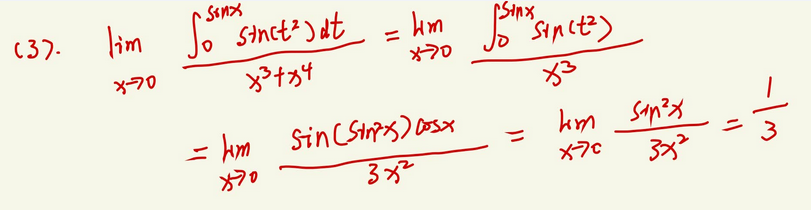 (3). lim_{x→0} \frac{∫_0^{sinx} sin(t²)dt}{x³+x⁴} = lim_{x→0} \frac{∫_0^{sinx} sin(t²)}{x³}
= lim_{x→0} \frac{sin(sin²x)cosx}{3x²} = lim_{x→0} \frac{sin²x}{3x²} = \frac{1}{3}